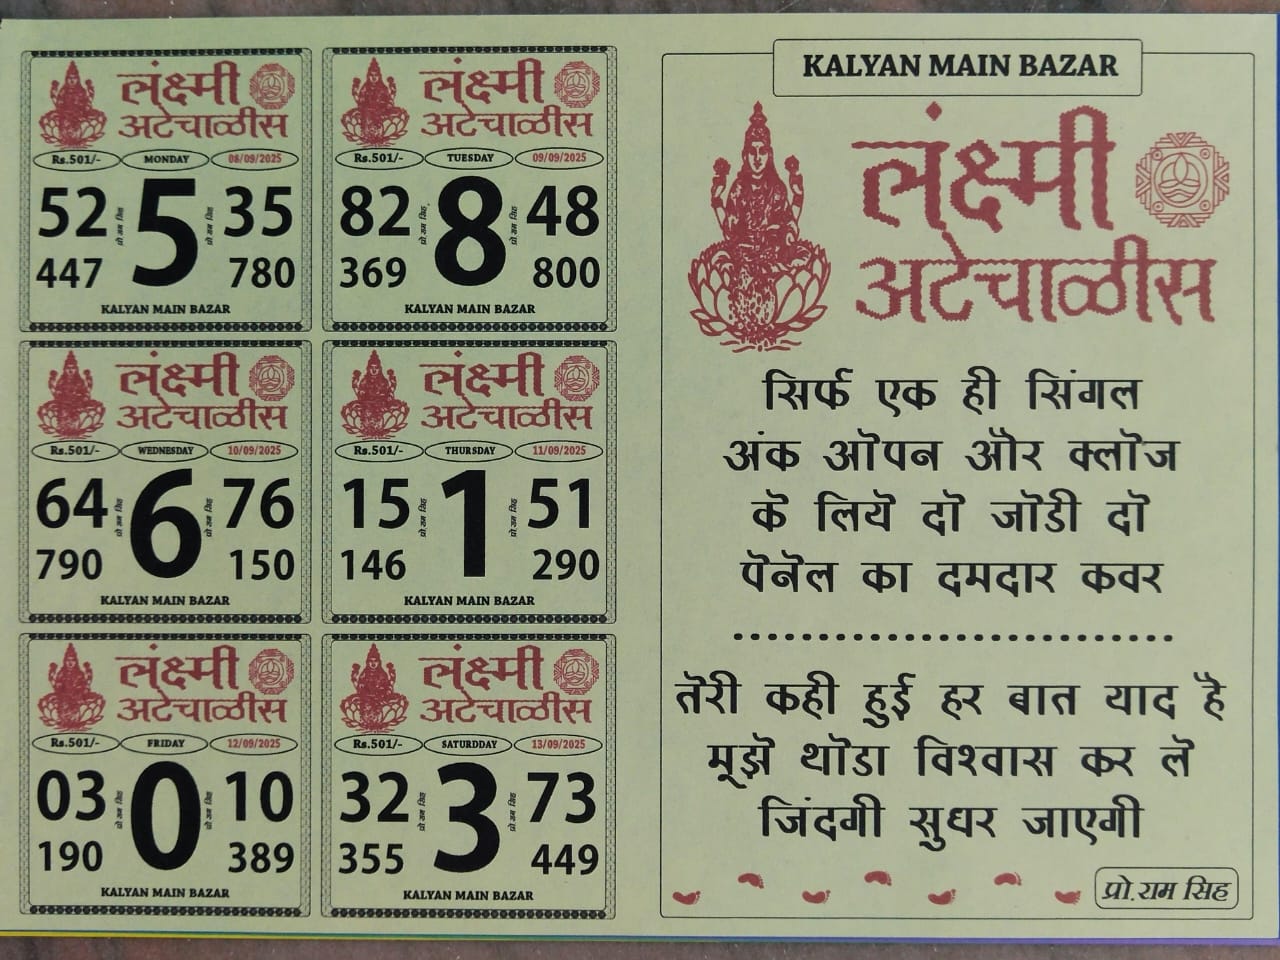 लंक्ष्मी
अटेचाळीस
Rs.501/- MONDAY 08/09/2025
52 5 35
प्रो. राम सिह प्रो. राम सिह
447 780
KALYAN MAIN BAZAR
लंक्ष्मी
अटेचाळीस
Rs.501/- TUESDAY 09/09/2025
82 8 48
प्रो. राम सिह प्रो. राम सिह
369 800
KALYAN MAIN BAZAR
लंक्ष्मी
अटेचाळीस
Rs.501/- WEDNESDAY 10/09/2025
64 6 76
प्रो. राम सिह प्रो. राम सिह
790 150
KALYAN MAIN BAZAR
लंक्ष्मी
अटेचाळीस
Rs.501/- THURSDAY 11/09/2025
15 1 51
प्रो. राम सिह प्रो. राम सिह
146 290
KALYAN MAIN BAZAR
लंक्ष्मी
अटेचाळीस
Rs.501/- FRIDAY 12/09/2025
03 0 10
प्रो. राम सिह प्रो. राम सिह
190 389
KALYAN MAIN BAZAR
लंक्ष्मी
अटेचाळीस
Rs.501/- SATURDDAY 13/09/2025
32 3 73
प्रो. राम सिह प्रो. राम सिह
355 449
KALYAN MAIN BAZAR
KALYAN MAIN BAZAR
लंक्ष्मी
अटेचाळीस
सिर्फ एक ही सिंगल
अंक ऒपन और क्लॊज
कॆ लियॆ दॊ जॊडी दॊ
पॆनॆल का दमदार कवर
तॆरी कही हुई हर बात याद है
मूझॆ थॊडा विश्वास कर लॆ
जिंदगी सुधर जाएगी
प्रो. राम सिह